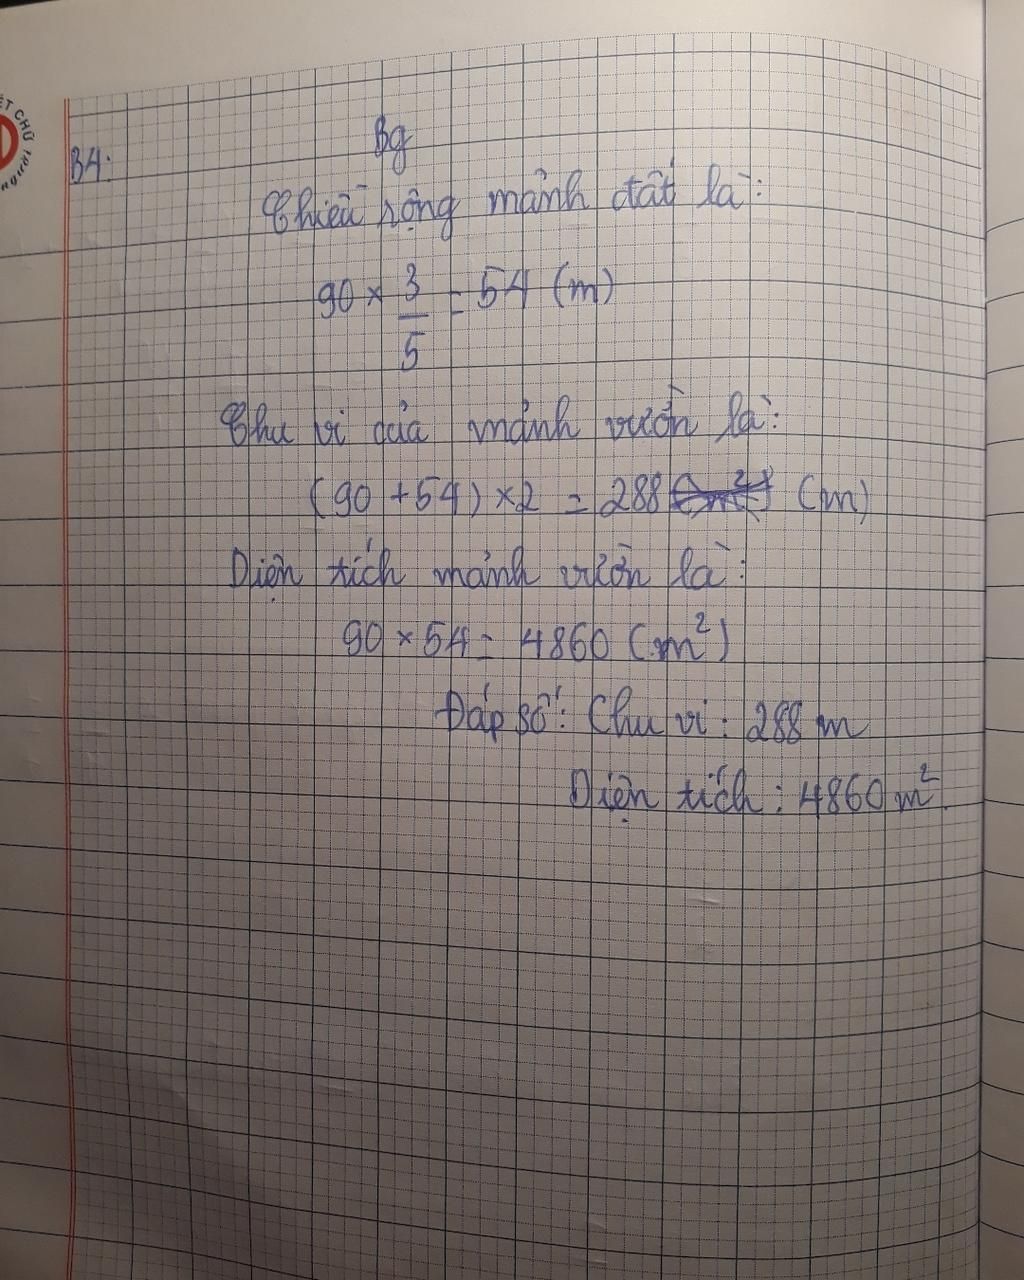 ẾT CHỮ
NGƯỜI
B4:
Bg
Chiều rộng mảnh đất là:
90 × 3/5 = 54 (m)
Chu vi của mảnh vườn là:
(90 + 54) × 2 = 288 (m)
Diện tích mảnh vườn là:
90 × 54 = 4860 (m²)
Đáp số: Chu vi: 288 m
Diện tích: 4860 m².